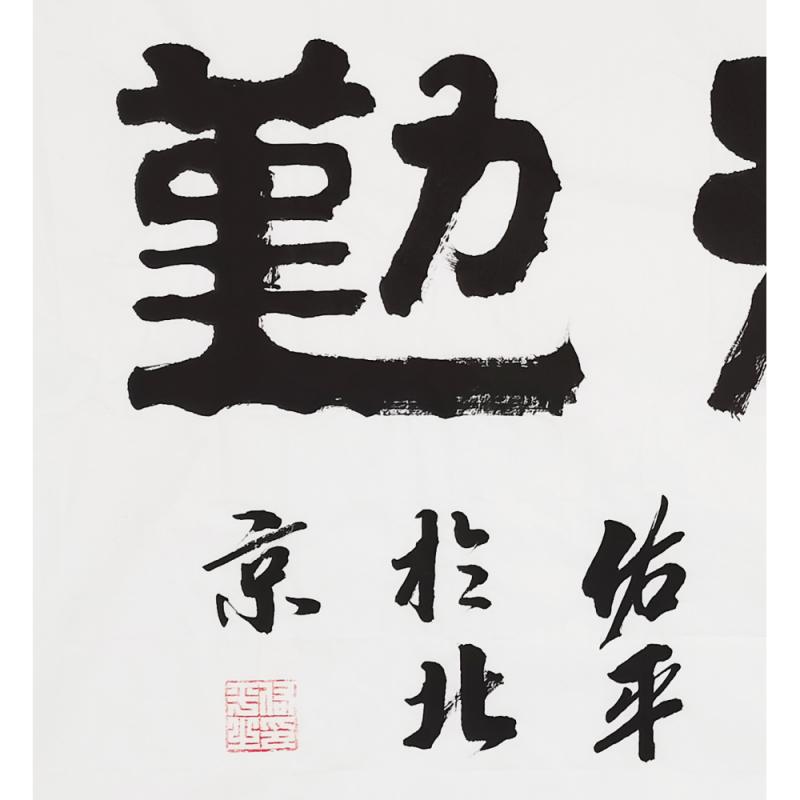 勤
佑平
於北
京